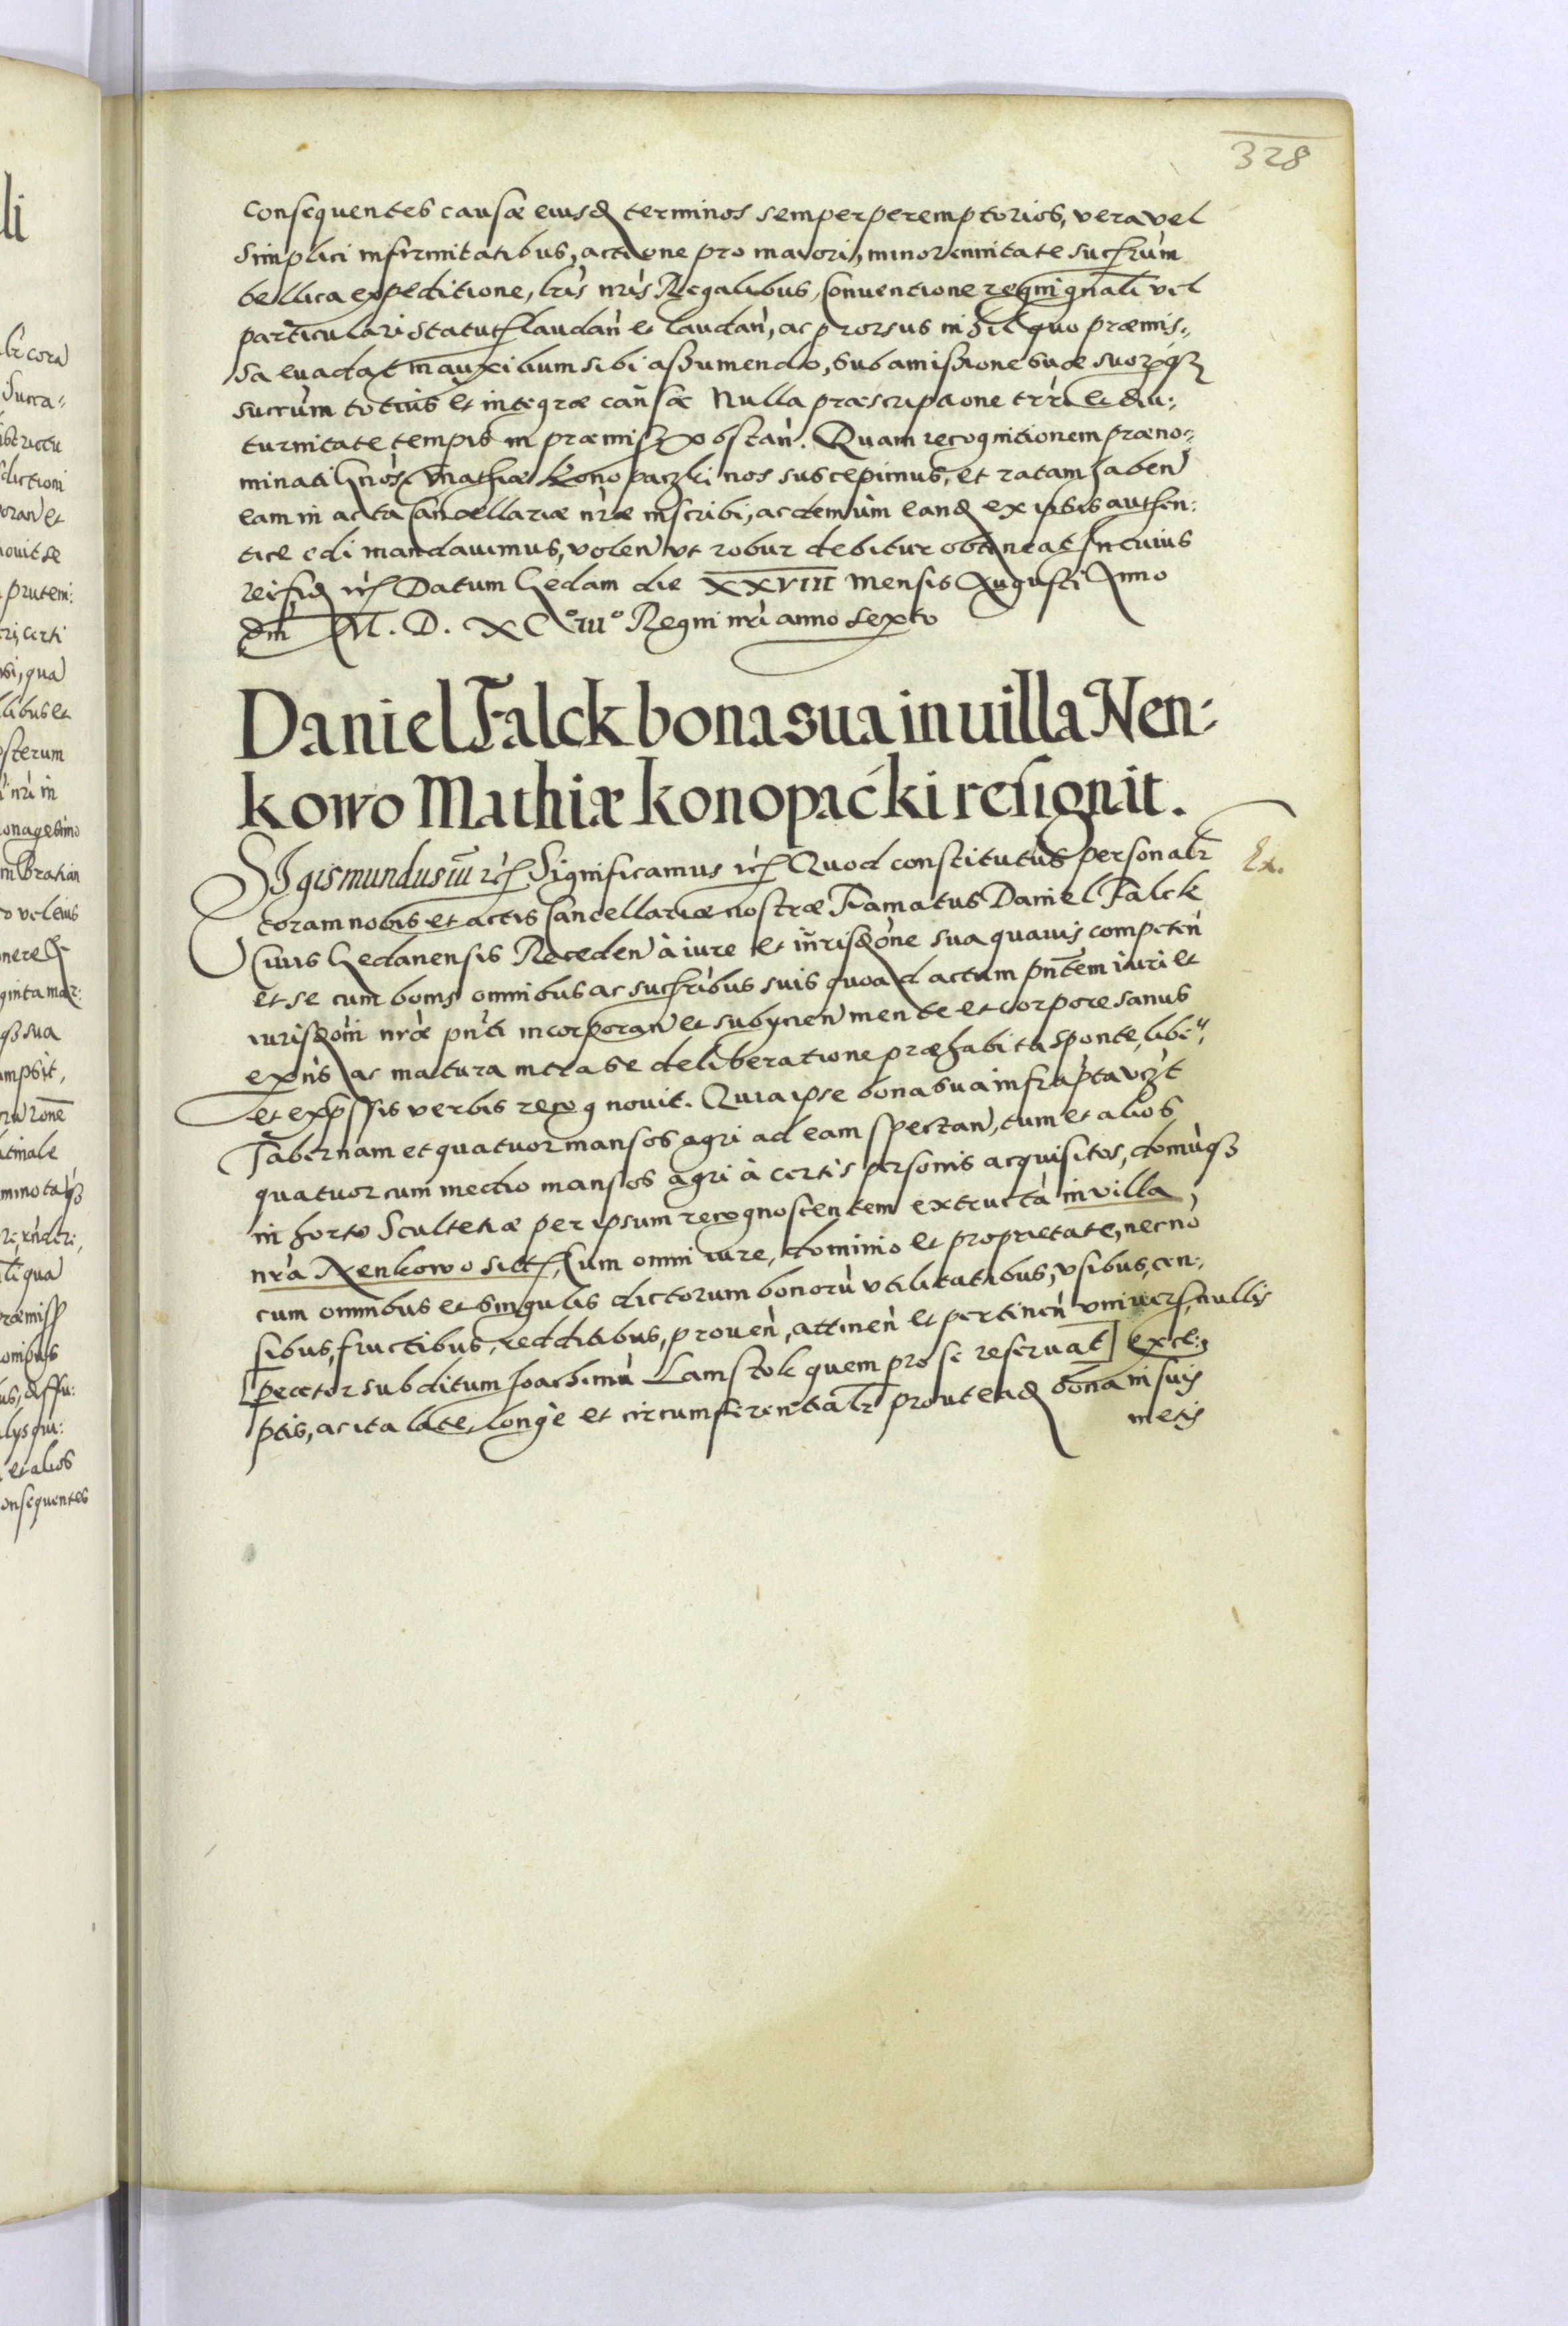 328
consequentes causæ eiusd terminos semper peremptorios, vera vel
simplici infirmitatibus, actione pro maiori, minorennitate succrum
bellica expeditione, lris nris Regalibus, Conventione regni gnali vel
particulari statut laudan et laudan, ac prorsus nihil quo præmis-
sa evadat in auxilium sibi assumendo, sub amissione suæ suorq
succrum totius et integræ causæ Nulla præscriptione trri et diu-
turnitate tempis in præmiss obstan. Quam recognitionem præno-
minati Gnosi Mathiæ Konopaczki nos suscepimus, et ratam haben
eam in acta Cancellariæ nræ inscribi, ac demum eand ex ipsis authen-
tice edi mandavimus, volen ut robur debitur obtineat In cuius
rei fid etc Datum Gedani die XXVIII mensis Augusti Anno
Dni M. D. XCIIIo Regni nri anno sexto
Daniel Falck bona sua in uilla Nen-
kowo Mathiæ Konopacki resignit.
Ex.
SIgismundus iii etc Significamus etc Quod constitutus personalr
coram nobis et actis Cancellariæ nostræ Famatus Daniel Falck
Civis Gedanensis Receden à iure et iurisdone sua quavis competen
et se cum bonis omnibus ac sucfribus suis quoad actum pntem iuri et
iurisdoni nræ pnti incorporan et subycien mente et corpore sanus
exns ac matura intra se deliberatione præhabita sponte, libe
et expssis verbis recognovit. Quia ipse bona sua infrapta vczt
Tabernam et quatuor mansos agri ad eam spectan, tum et alios
quatuor cum medio mansos agri à certis personis acquisitos, domuq
in horto Scultetiæ per ipsum recognoscentem extructa in villa
nra Nenkowo sitt, Cum omni iure, dominio et proprietate, necno
cum omnibus et singulis dictorum bonoru utilitatibus, usibus, cen-
sibus, fructibus, redditibus, proven, attinen et pertinen univers, nullis
[præter subditum Joachimu Lamstok quem pro se reservat] exce-
ptis, ac ita late, longe et circumferentialr prout ead bona in suis
metis